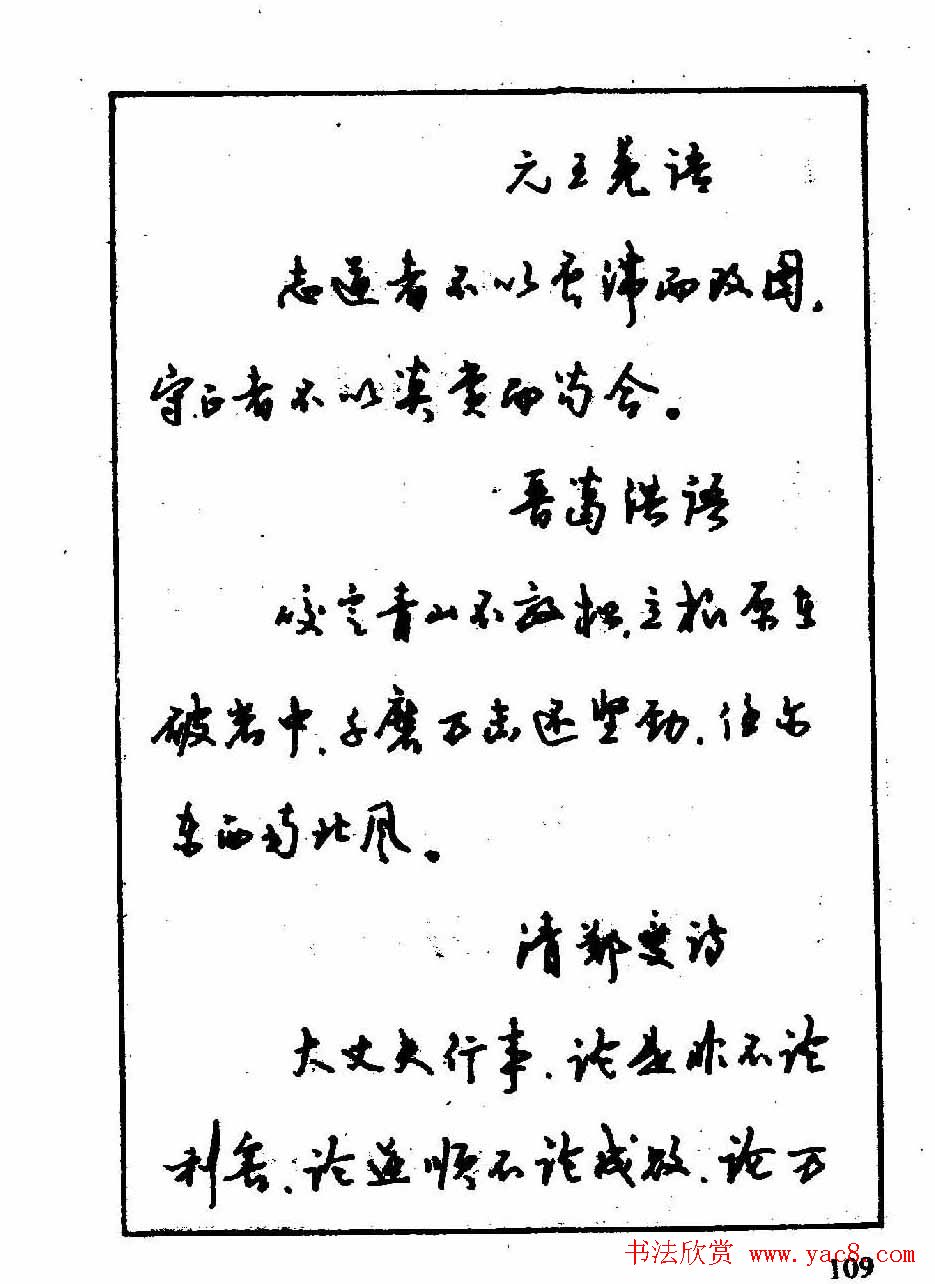 元王冕语
志道者不以否滞而改图，
守正者不以莫赏而苟合。
晋葛洪语
咬定青山不放松，立根原在
破岩中，千磨万击还坚劲，任尔
东西南北风。
清郑燮诗
大丈夫行事，论是非不论
利害，论逆顺不论成败，论万
书法欣赏 www.yac8.com
109